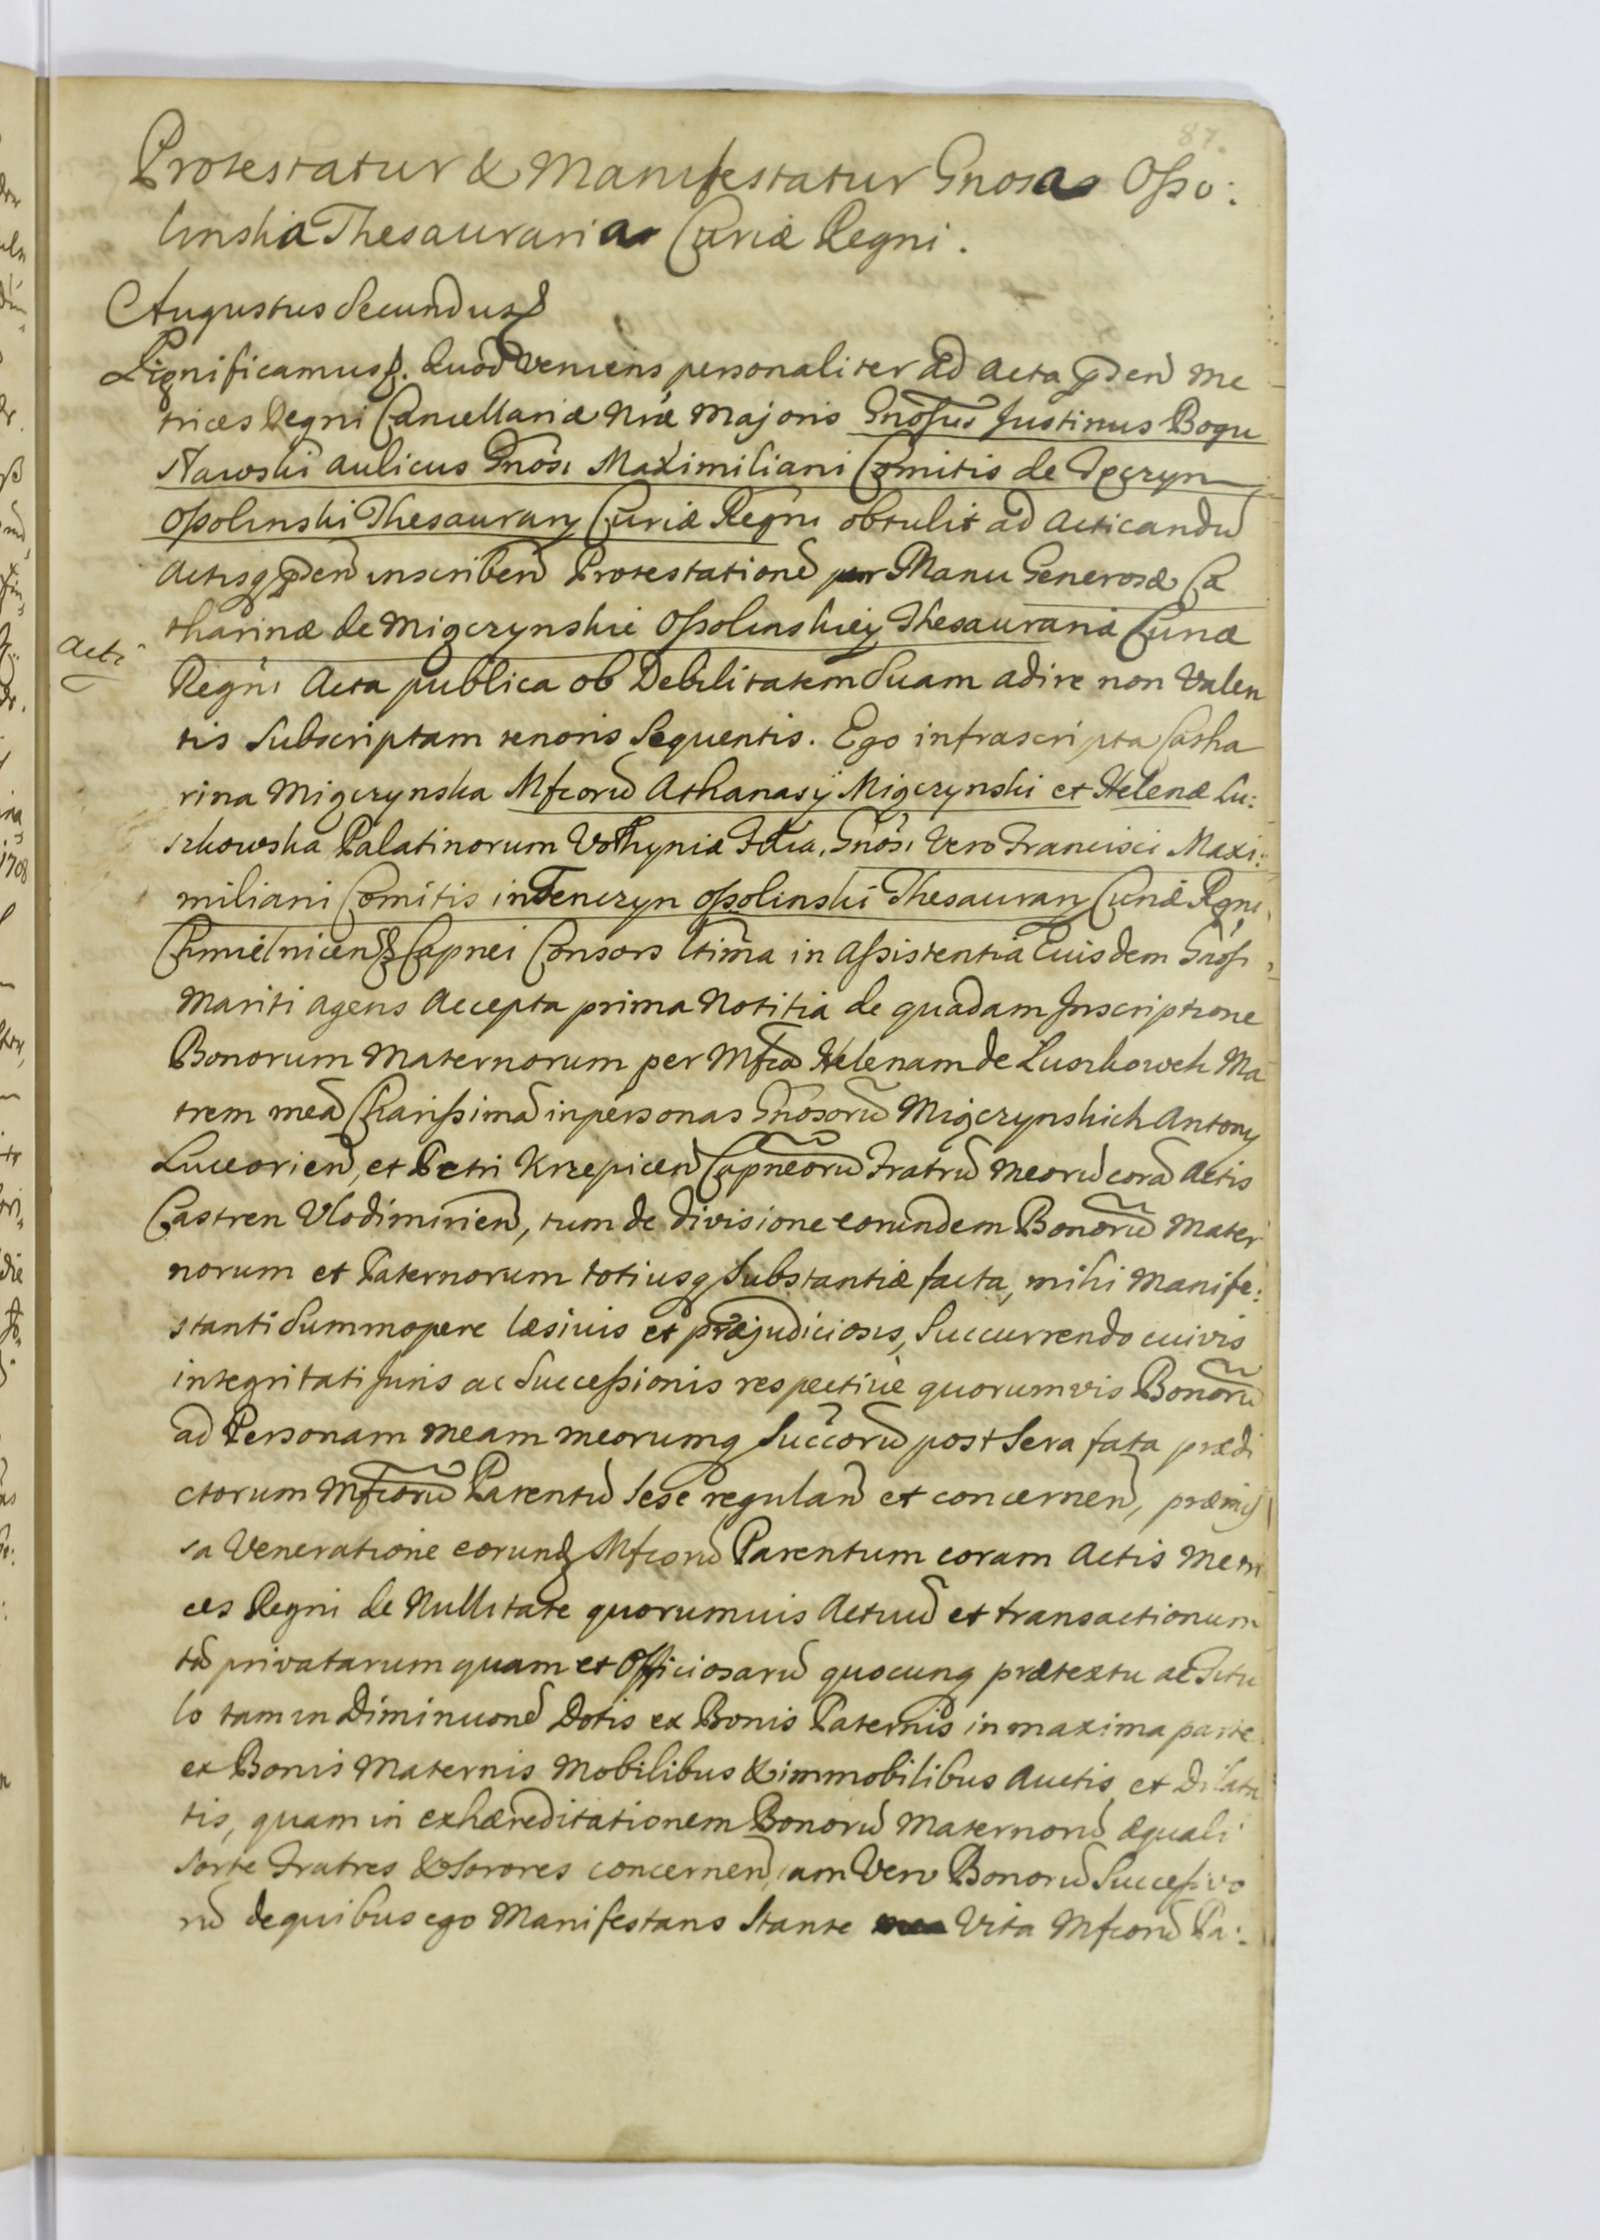 87.
Protestatur & Manifestatur Gnosa Osso:
linska Thesauraria Curiæ Regni.
Augustus Secundus
Significamus. Quod veniens personaliter ad Acta pden Me
trices Regni Cancellariæ Nræ Majoris Gnosus Justinus Bogu
sławski Aulicus Gnosi Maximiliani Comitis de Tęczyn
Ossolinski Thesaurarij Curiæ Regni obtulit ad Acticandū
Actisq pden inscriben Protestationē per Manu Generosæ Ca
tharinæ de Miączynskie Ossolinskiey Thesauraria Curiæ
Acti
Regni Acta publica ob Debilitatem Suam adire non Valen
tis Subscriptam tenoris Sequentis. Ego infrascripta Catha
rina Miączynska Mfcorū Athanasÿ Miączynski et Helenæ Lu:
szkowska Palatinorum Volhyniæ Filia, Gnosi Vero Francisci Maxi:
miliani Comitis in Tenczyn Ossolinski Thesaurarij Curiæ Rgni,
Chmielnicen Capnei Consors ltima in Assistentia Eiusdem Gnosi
Mariti agens Accepta prima Notitia de quadam Inscriptione
Bonorum Maternorum per Mfcā Helenam de Luszkowch Ma
trem meā Charissimā in personas Gnosorū Miączynskich Antonij
Luceorien, et Petri Krzepicen Capneorū Fratrū Meorū corā Actis
Castren Vlodimirien, tum de divisione eorundem Bonorū Mater
norum et Paternorum totiusq Substantiæ facta, mihi Manife:
stanti Summopere læsivis et præjudiciosis, Succurrendo cuivis
integritati Juris ac Successionis respective quorumvis Bonorū
ad Personam meam meorumq Succorū post Sera fata prædi
ctorum Mfcorū Parentū Sese regulan et concernen, præmis
sa Veneratione eorund Mfcorū Parentum coram Actis Metri
ces Regni de Nullitate quorumuis Actuū et transactionum
tā privatarum quam et Officiosarū quocunq prætextu ac Titu
lo tam in Diminuonē Dotis ex Bonis Paternis in maxima parte
ex Bonis Maternis Mobilibus & immobilibus Auctis et Dilata
tis, quam in exhæreditationem Bonorū Maternorū æquali
sorte Fratres & Sorores concernen, iam Vero Bonorū Successivo
rū de quibus ego Manifestans Stante Vita Mfcorū Pa: